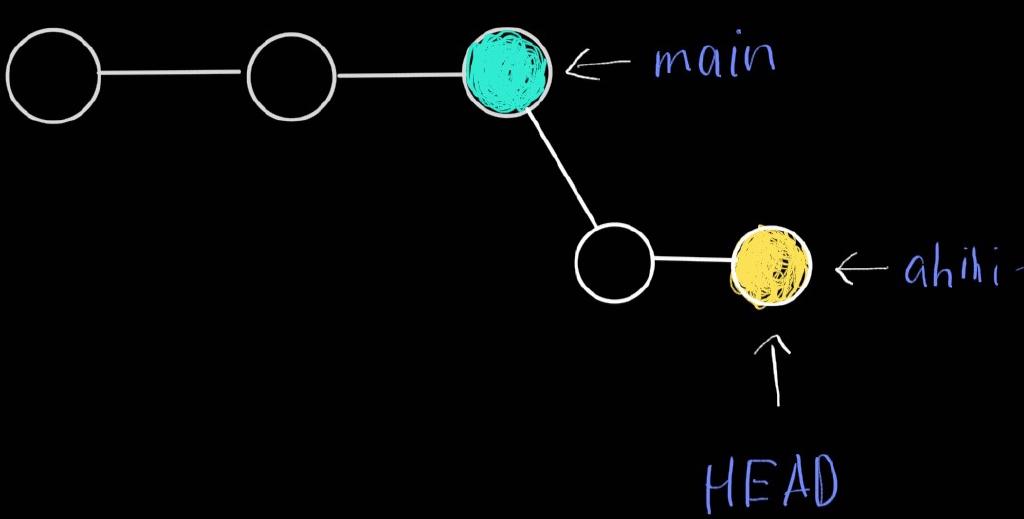 main
ahihi-
HEAD